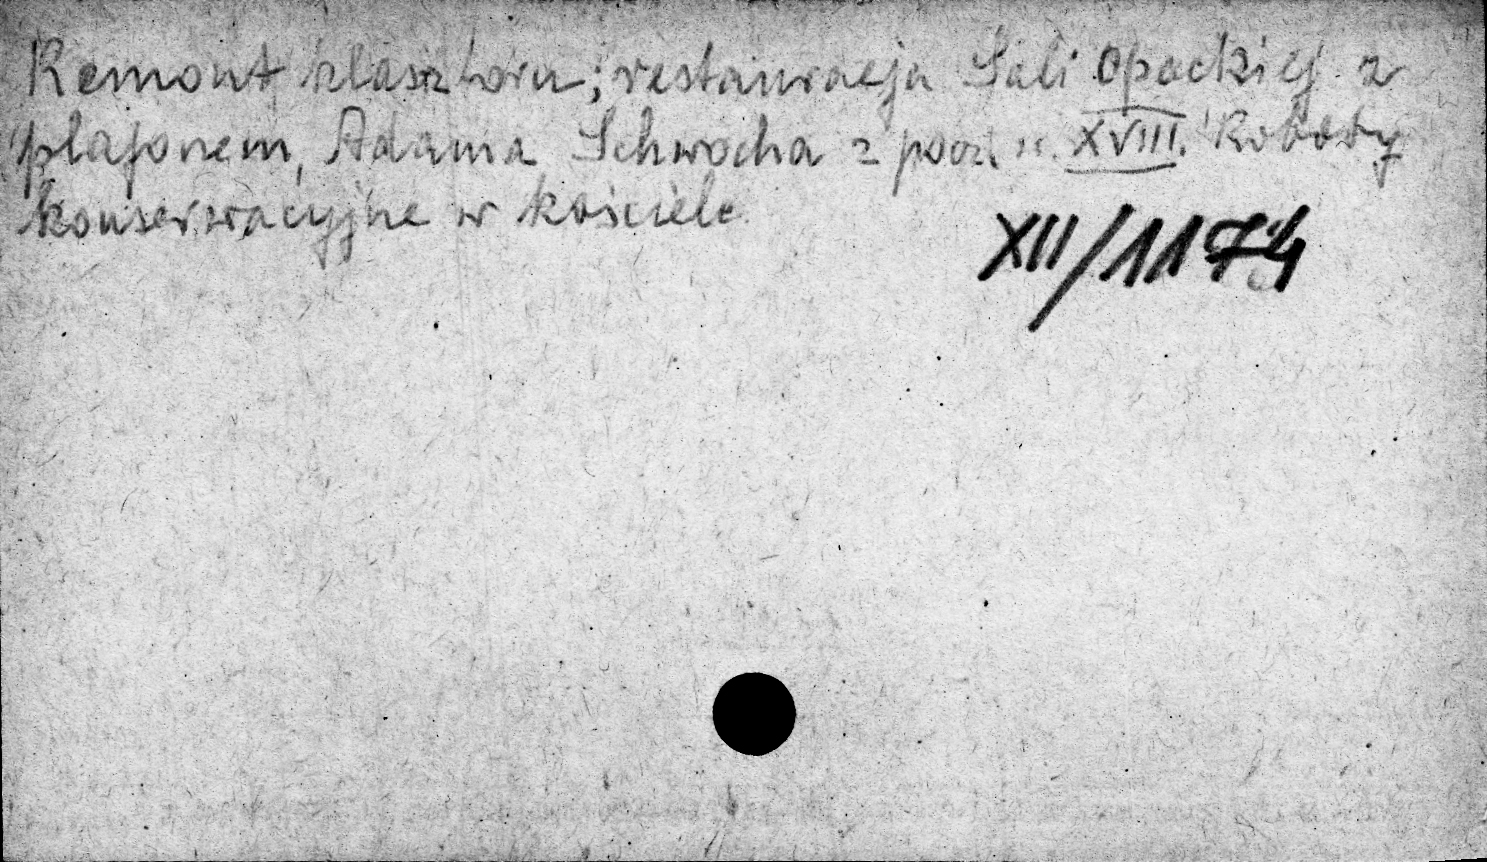 Remont klasztoru; restauracja Sali Opackiej z
plafonem, Adama Schwocha z pocz. w. XVIII. Roboty
konserwacyjne w kościele
XII/1174